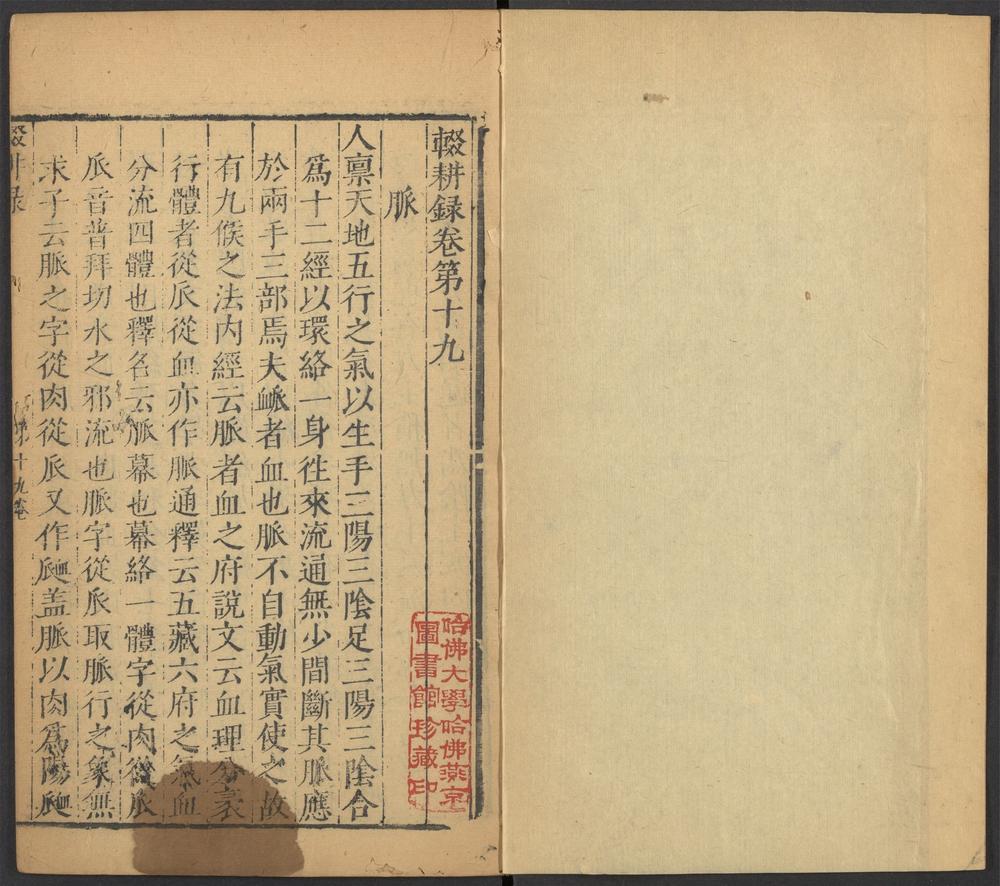 輟耕録卷第十九
脈
人禀天地五行之氣以生手三陽三陰足三陽三陰合
爲十二經以環絡一身徃來流通無少間斷其脈應
於兩手三部焉夫衇者血也脈不自動氣實使之故
有九候之法内經云脈者血之府説文云血理分衺
行體者從𠂢從血亦作脈通釋云五藏六府之氣血
分流四體也釋名云脈幕也幕絡一體字從肉從𠂢
𠂢音普拜切水之邪流也脈字從𠂢取脈行之象無
求子云脈之字從肉從𠂢又作𧖴盖脈以肉爲陽𧖴
輟耕录
十九卷
哈佛大學哈佛燕京
圖書館珍藏印